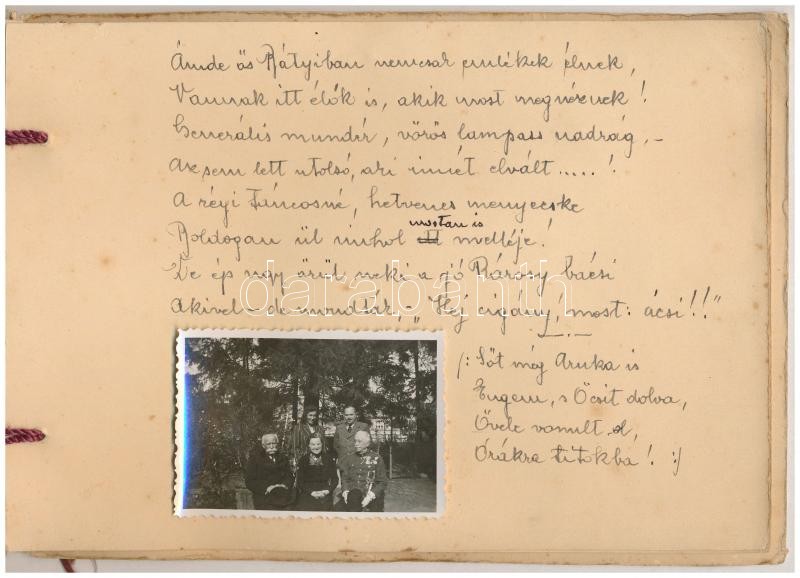 Ámde ős Rátyiban nemcsak emlékek élnek,
Vannak itt élők is, akik most megnéznek!
Generális mundér, vörös lampass nadrág, –
Az sem lett utolsó, aki imét elvált.....!
A régi Táncosné, hetvenes menyecske
Boldogan ül imhol mostan is melléje!
De ép ugy örül neki a jó Bárósy bácsi
Akivel – de mondták, – "Héj cigány, most: ácsi!!"
/: Sőt még Aruka is
Eugem, s Öcsit dolva,
Ővele vonult el,
Órákra titokba! :/
darabanth.com